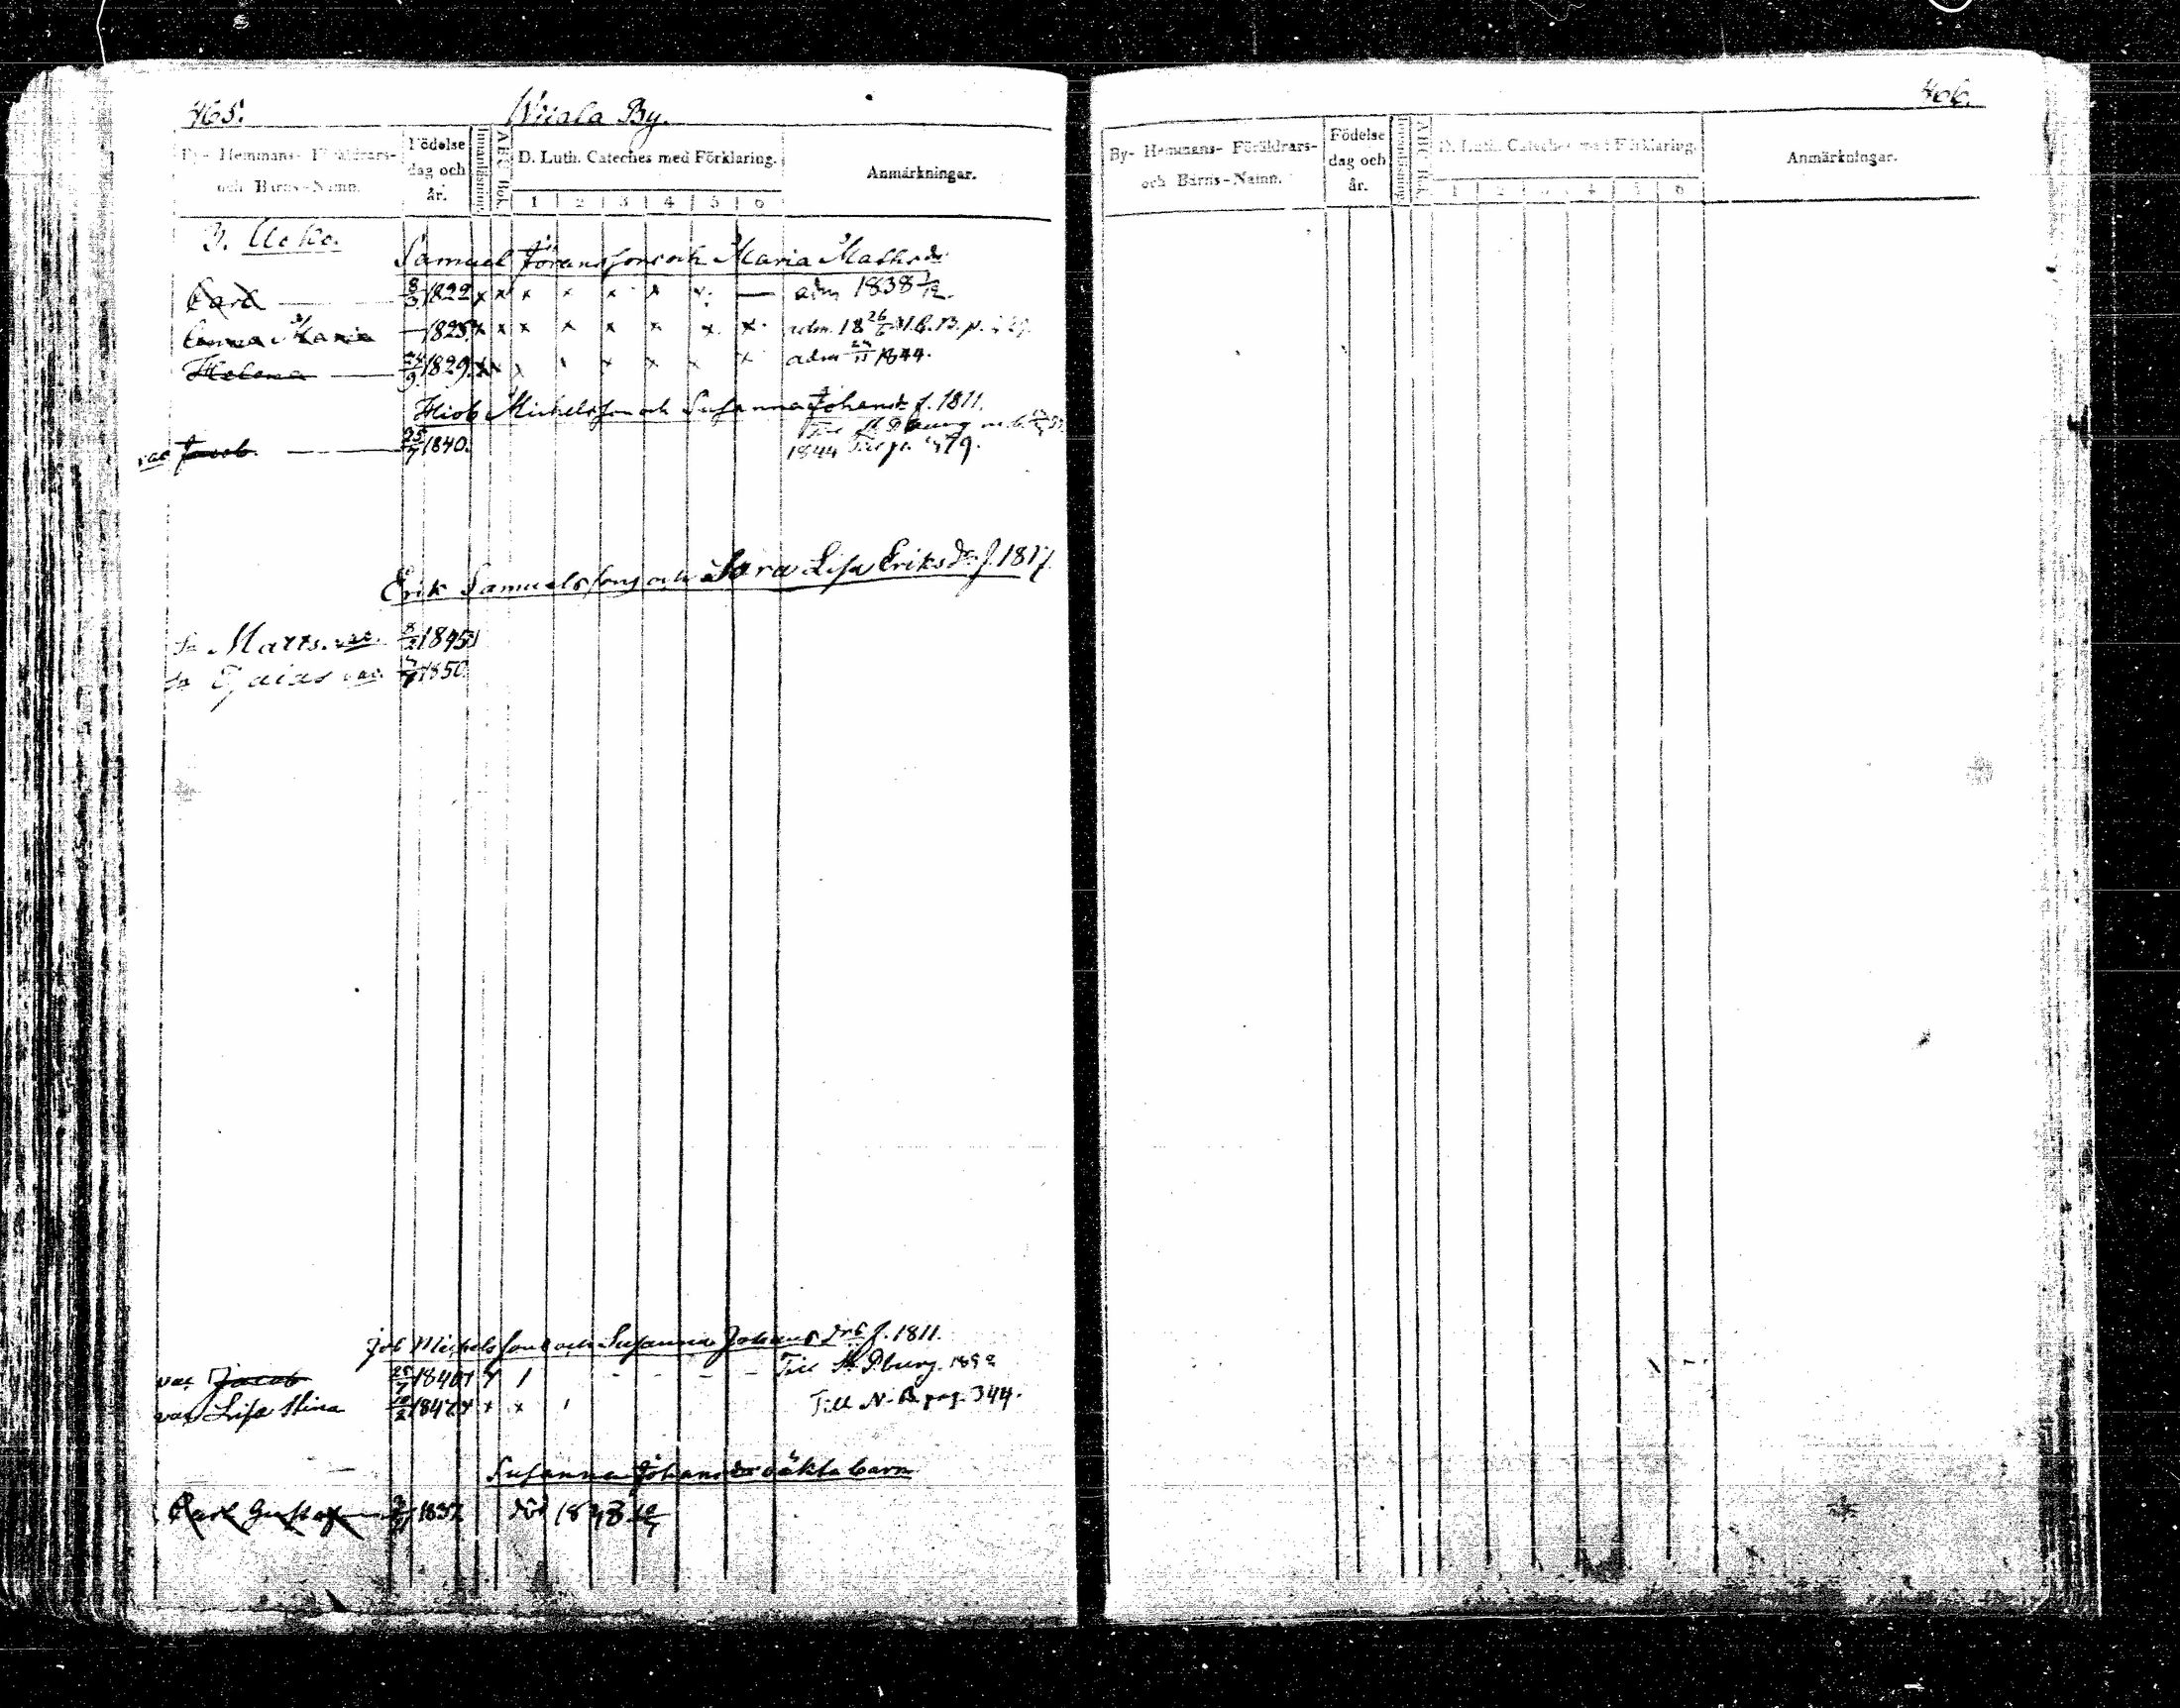 465. Wiiala By.
By- Hemmans- Föräldrars- och Barns-Namn.
Födelse dag och år.
Innanläsning.
ABC Bok.
D. Luth. Cateches med Förklaring.
1 2 3 4 5 6
Anmärkningar.
3. Uoko.
Samuel Jöransson och Maria Mathsdr
Carl 8/3 1822 x x x x x x x — adm 1838
Anna Maria — 1825 x x x x x x x x adm. 18
Helena 24/9 1829 x x x x x x adm 24/11 1844.
Hiob Michelsson och Susanna Johansdr f. 1811.
Till St Pburg
vac Jacob. 25/7 1840. 1844
Erik Samuelsson och Sara Lisa Eriksdr f. 1817.
Sn Matts. vac. 8/2 1845
Sn Esaias vac. 1850.
Job Michelsson och Susanna Johansdr f. 1811.
vac Jacob 25/7 1840 Till St Pburg. 1852
vac Lisa Stina 1847 x x x Till N. B. pag. 344.
Susanna Johansdr oäkta barn
Carl Gustaf 1837 död 1838
466.
By- Hemmans- Föräldrars- och Barns-Namn.
Födelse dag och år.
Innanläsning.
ABC Bok.
D. Luth. Cateches med Förklaring.
1 2 3 4 5 6
Anmärkningar.